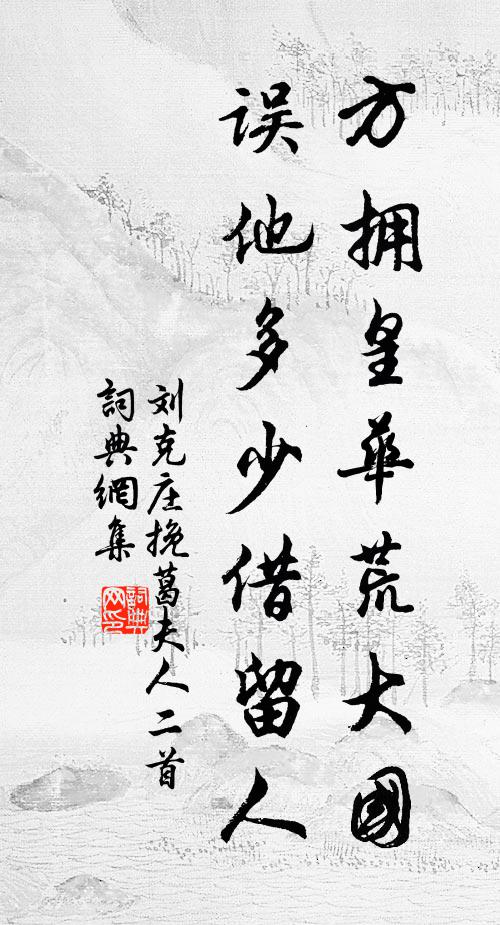 方拥皇华荒大國
误他多少借留人
刘克庄挽葛夫人二首
詞典網集
詞典网印